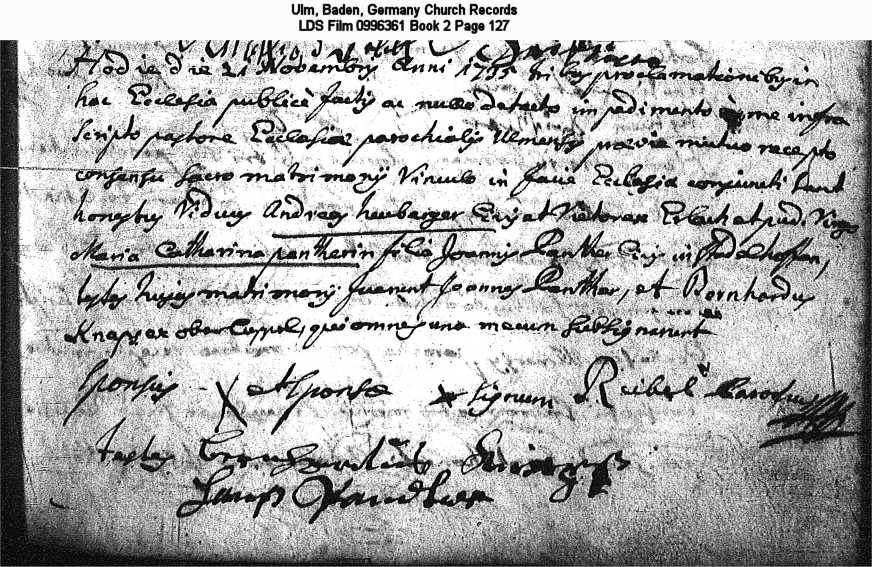 Ulm, Baden, Germany Church Records
LDS Film 0996361 Book 2 Page 127
Hodie die 21 Novembris Anni 1755 tribus proclamationibus in
hac Ecclesia publice factis ac nullo detecto impedimento a me infra
scripto pastore Ecclesiae parochialis Ulmensis praevie mutuo recepto
consensu sacro matrimonij vinculo in facie Ecclesia conjuncti sunt
honestus Viduus Andreas heubarger Civis et Viduus ex Erlach et pud. Virgo
Maria Catharina pantherin filia Joannis Panther Civis in Stadelhoffen,
testes hujus matrimonij fuerunt Joannes Panther, et Bernhardus
Knapp ex ober Cappel, qui omnes una mecum subsignarunt
Sponsus X et Sponsae x signum Reibelt Parochus
testes
Panther